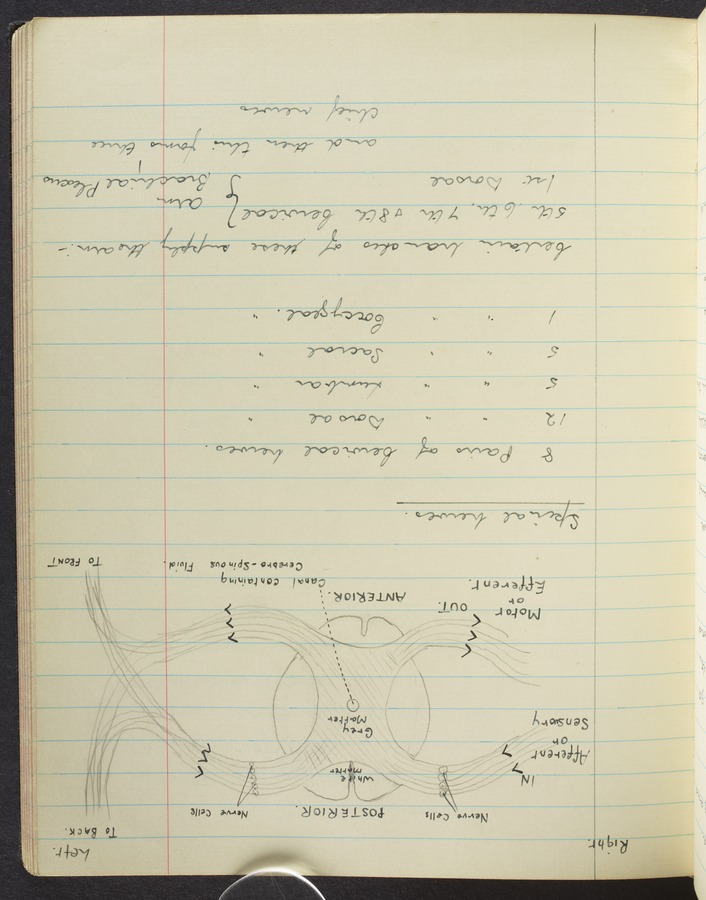 Right. Left.
To BACK.
POSTERIOR.
Nerve Cells Nerve Cells
IN
White
matter
Afferent
or
Sensory
Grey
Matter
Motor
or
Efferent.
OUT.
ANTERIOR.
Canal containing
Cerebro-Spinous Fluid.
To FRONT
Spinal nerves.
8 Pairs of Cervical nerves.
12 " " Dorsal "
5 " " Lumbar "
5 " " Sacral "
1 " " Coccygeal. "
Certain branches of these supply the arm:-
5th, 6th, 7th & 8th Cervical } arm
1st Dorsal Brachial Plexus
and then this forms three
chief nerves